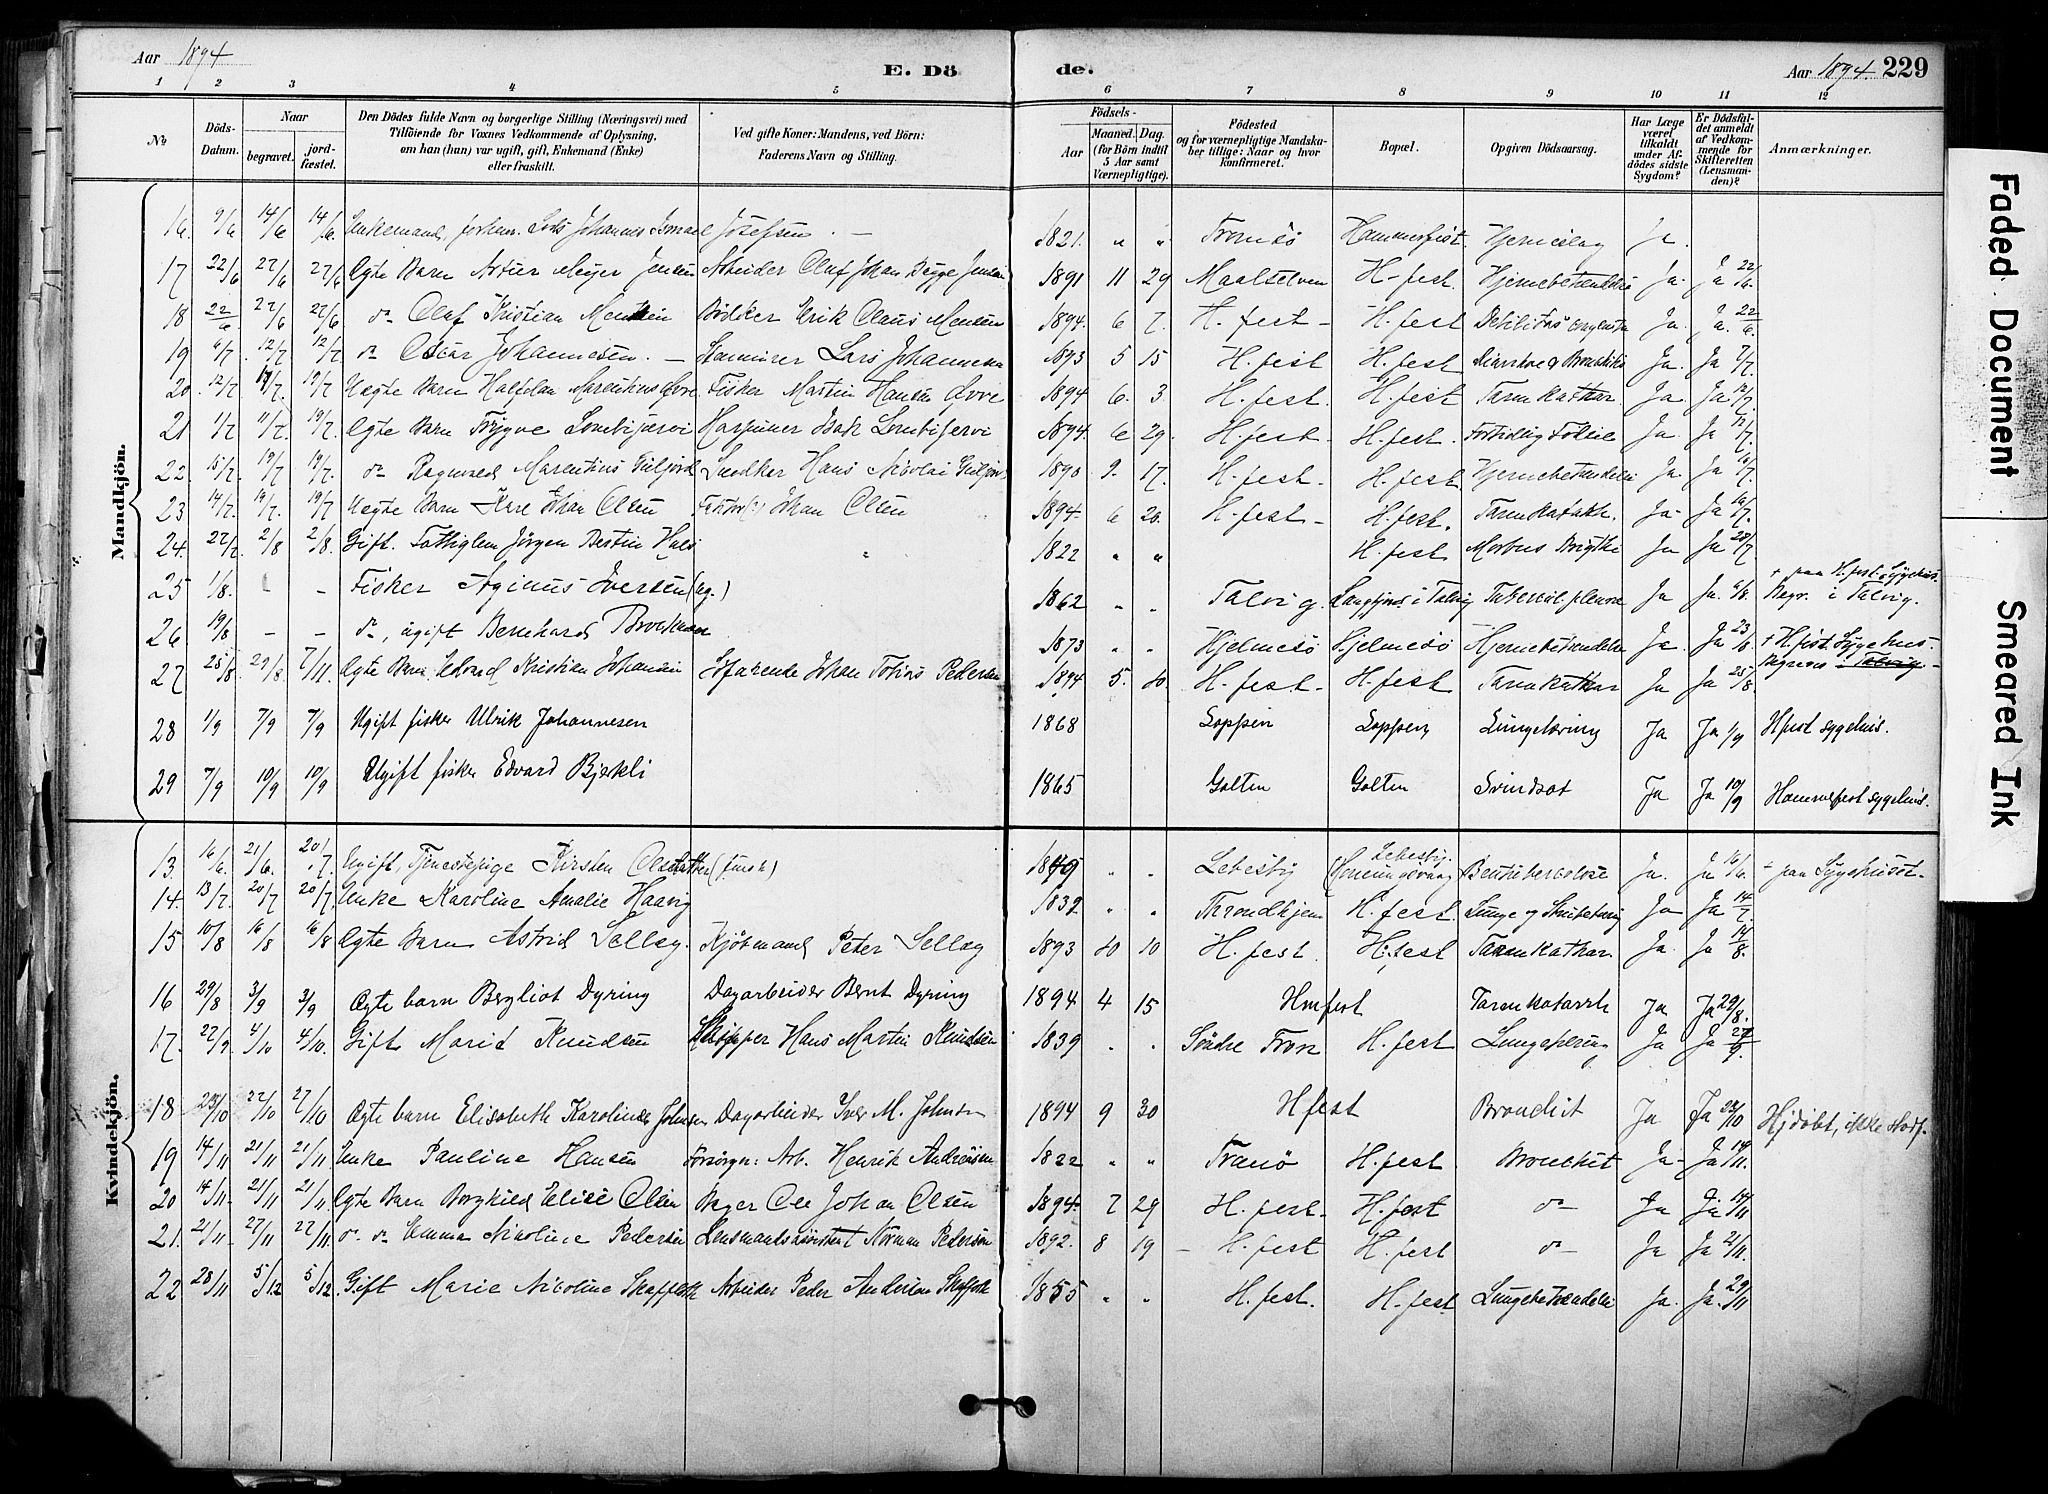 Aar 1894
E. Dö
de.
Aar 1894. 229
1 2 3 4 5 6 7 8 9 10 11 12
No
Döds-Datum.
Naar
begravet.
jord-fæstet.
Den Dödes fulde Navn og borgerlige Stilling (Næringsvei) med
Tilföiende for Voxnes Vedkommende af Oplysning,
om han (hun) var ugift, gift, Enkemand (Enke)
eller fraskilt.
Ved gifte Koner: Mandens, ved Börn:
Faderens Navn og Stilling.
Födsels-
Aar
Maaned. Dag.
(for Börn indtil
5 Aar samt
Værnepligtige).
Födested
og for værnepligtige Mandska-
ber tillige: Naar og hvor
konfirmeret.
Bopæl.
Opgiven Dödsaarsag.
Har Læge
været
tilkaldt
under Af-
dödes sidste
Sygdom?
Er Dödsfal-
det anmeldt
af Vedkom-
mende for
Skifteretten
(Lensman-
den)?
Anmærkninger.
Mandkjön.
16. 9/6 14/6 14/6 Enkemand, Lars Johannes Josefsen. — 1821. " " Tromsö Hammerfest Hjerneslag Ja.
17 22/6 27/6 27/6 Ægte Barn Artur Meyer Jensen Arbeider Olaf Johan Jensen 1891 11 29 Maalselven H-fest. Hjernebetændelse Ja. Ja 22/6.
18 22/6 27/6 27/6 do Olaf Kristian Mensen Bödker Erik Claus Mensen 1894. 6 7. H. fest - H. fest Debilitas Ja. Ja. 22/6.
19 6/7. 12/7. 12/7. do Oscar Johannesen. — Lars Johannesen 1893 5 15 H. fest H. fest Bronkitis Ja. Ja 7/7.
20. 12/7. 19/7. 19/7. Uegte Barn Halfdan Fisker Martin Hansen 1894 6. 3. H. fest. H. fest Tarmkathar. Ja Ja 12/7.
21 1/7 11/7. 19/7. Ægte Barn Trygve Harpuner Isak 1894. 6 29. H. fest. H. fest. Ja. Ja 12/7.
22. 15/7. 19/7 19/7. do Marentius Snedker Hans Nicolai 1890 9. 17. H. fest. H. fest. Hjernebetændelse Ja. Ja 16/7.
23 14/7. 19/7. 19/7 Uegte Barn Johan Olsen Johan Olsen 1894. 6 26. H. fest - H. fest. Tarmkatarh. Ja. Ja 16/7.
24. 27/7. 2/8 2/8. Gift. Fattiglem Jörgen " 1822 " " H. fest Morbus Brigthi Ja Ja 28/7
25 1/8. - - Fisker Iversen (ug.) 1862 " " Talvig. Langfjord i Talvig Tubercul. pleura Ja Ja. 6/8. + paa H. fest Sygehus.
Begr. i Talvig.
26 19/8 - - do, ugift Bernhard 1873 " " Hjelmesö Hjelmesö Hjernebetændelse Ja. Ja 23/8. + H. fest Sygehus.
27 25/8. 29/8 7/11. Ægte Barn Edvard Kristian Johansen Johan Tobias Pedersen 1894 5. 10. H. fest. H. fest Tarmkathar Ja Ja 25/8. i Talvig
28 1/9 7/9 7/9 Ugift fisker Ulrik Johannesen 1868 Loppen Loppen Lungetæring Ja Ja 1/9 Hfest sygehus.
29 7/9 10/9 10/9 Ugift fisker Edvard Bjækli 1865 Golten Golten Svindsot Ja Ja 10/9 Hammerfest sygehus.
Kvindekjön.
13. 16/6. 21/6. 20/7. Ugift, Tjenestepige Kirsten Olsdatter 1849 " " Lebesby Lebesby. Ja. Ja 16/6. + paa Sygehuset.
14. 13/7. 20/7 20/7. Enke Karoline Amalie Haavig 1832 " " Throndhjem H. fest. Ja Ja 14/7.
15 10/8 16/8 16/8 Ægte Barn Astrid Selleg. Kjöbmand Peter Selleg 1893 10 10 H. fest. H. fest Tarmkathar Ja. Ja 14/8.
16 29/8 3/9 3/9 Ægte barn Bergliot Dyring Dagarbeider Bernt Dyring 1894 4 15 Hmfest Tarmkatarrh Ja Ja 29/8.
17. 27/9. 4/10 4/10. Gift Marie Knudsen Skipper Hans Martin Knudsen 1839 " " Söndre Fron H. fest Ja Ja 27/9.
18 23/10 27/10 27/10 Ægte barn Elisabeth Karoline Johnsen Dagarbeider Iver M. Johnsen 1894 9 30 Hfest Bronchit Ja Ja 23/10 Hjdöbt, ikke stadf.
19 14/11 21/11 21/11 Enke Pauline Hansen Forsörger: Arb. Henrik Andersen 1822 " " Tranö H. fest. Bronchit Ja Ja 14/11.
20 14/11. 21/11 21/11 Ægte Barn Borghild Elise Olsen Bager Ole Johan Olsen 1894. 7 29 H. fest. H. fest do Ja Ja. 14/11
21. 21/11. 27/11 27/11. do do Emma Nicoline Pedersen Lensmandsassistent Norman Pedersen 1892. 8 19 - H. fest H. fest do Ja Ja 21/11.
22 28/11 5/12 5/12 Gift Marie Nicoline Arbeider Peder Andersen 1855 " " H. fest. H. fest Lungebetændelse Ja. Ja. 29/11
Faded Document
Smeared Ink